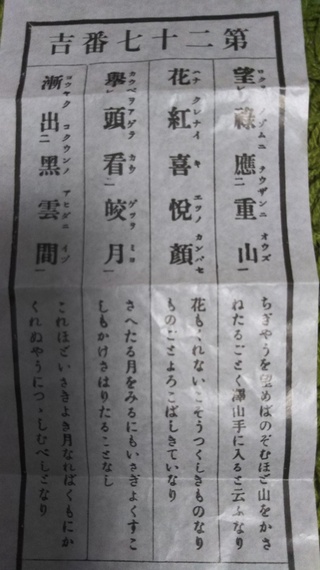 第二十七番吉
望レ祿應二重山一
ちぎやうを望めばのぞむほど山をかさ
ねたるごとく澤山手に入ると云ふなり
花紅喜悅顔
花もくれないこそうつくしきものなり
ものごとよろこばしきていなり
擧レ頭看二皎月一
さへたる月をみるにもいさぎよくすこ
しもかけさはりたることなし
漸出二黑雲間一
これほどいさきよき月なればくもにか
くれぬやうにつゝしむべしとなり